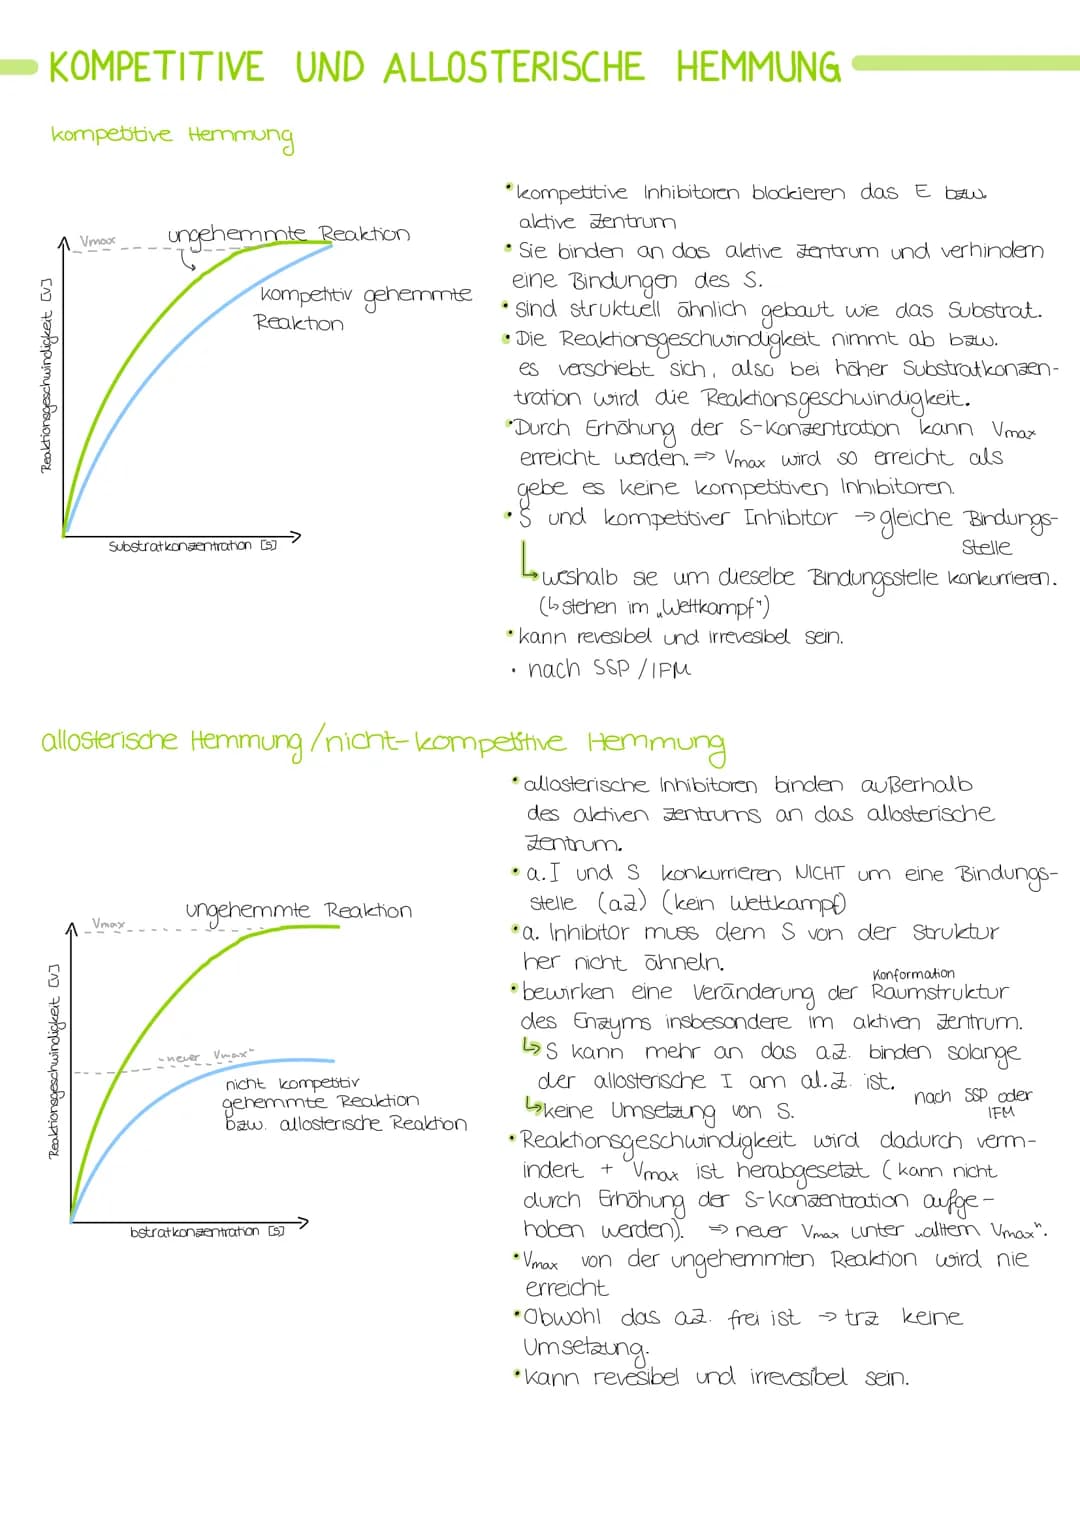 KOMPETITIVE UND ALLOSTERISCHE HEMMUNG
kompetitive Hemmung
Vmax
ungehemmte Reaktion
kompetitiv gehemmte
Reaktion
Reaktionsgeschwindigkeit [V]
Substratkonzentration [S]
• kompetitive Inhibitoren blockieren das E bzw.
aktive Zentrum
• Sie binden an das aktive Zentrum und verhindern
eine Bindungen des S.
• sind struktuell ähnlich gebaut wie das Substrat.
• Die Reaktionsgeschwindigkeit nimmt ab bzw.
es verschiebt sich, also bei höher Substratkonzen-
tration wird die Reaktionsgeschwindigkeit.
• Durch Erhöhung der S-Konzentration kann Vmax
erreicht werden. ⇒ Vmax wird so erreicht als
gebe es keine kompetitiven Inhibitoren.
• S und kompetitiver Inhibitor → gleiche Bindungs-
stelle
↳ weshalb sie um dieselbe Bindungsstelle konkurrieren.
(↳ stehen im „Wettkampf")
• kann revesibel und irrevesibel sein.
• nach SSP / IFM
allosterische Hemmung / nicht-kompetitive Hemmung
• allosterische Inhibitoren binden außerhalb
des aktiven Zentrums an das allosterische
Zentrum.
• a. I und S konkurrieren NICHT um eine Bindungs-
stelle (aZ) (kein Wettkampf)
• a. Inhibitor muss dem S von der Struktur
her nicht ähneln.
Konformation
• bewirken eine Veränderung der Raumstruktur
des Enzyms insbesondere im aktiven Zentrum.
↳ S kann mehr an das a.Z. binden solange
der allosterische I am al.Z. ist.
↳ keine Umsetzung von S.
nach SSP oder
IFM
• Reaktionsgeschwindigkeit wird dadurch verm-
indert + Vmax ist herabgesetzt (kann nicht
durch Erhöhung der S-Konzentration aufge-
hoben werden). ⇒ neuer Vmax unter „alltem Vmax".
• Vmax von der ungehemmten Reaktion wird nie
erreicht
• Obwohl das a.Z. frei ist → trz keine
Umsetzung.
• kann revesibel und irrevesibel sein.
Vmax
ungehemmte Reaktion
„neuer Vmax"
nicht kompetitiv
gehemmte Reaktion
bzw. allosterische Reaktion
Reaktionsgeschwindigkeit [V]
bstratkonzentration [S]